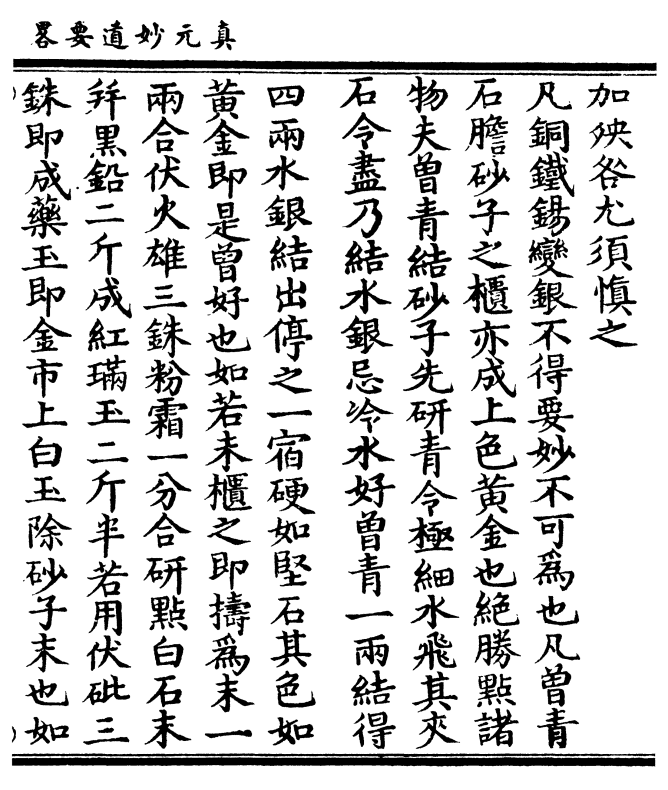 真元妙道要畧
加殃咎尤須慎之
凡銅鐵錫變銀不得要妙不可爲也凡曾青
石膽砂子之櫃亦成上色黃金也絶勝點諸
物夫曾青結砂子先研青令極細水飛其夾
石令盡乃結水銀忌冷水好曾青一兩結得
四兩水銀結出停之一宿硬如堅石其色如
黃金即是曾好也如若未櫃之即擣爲末一
兩合伏火雄三銖粉霜一分合研點白石末
并黑鉛二斤成紅璊玉二斤半若用伏砒三
銖即成藥玉即金市上白玉除砂子末也如